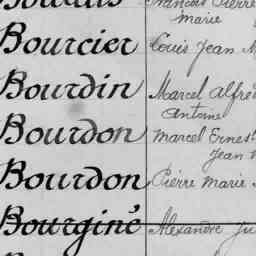 François Pierre
marie
Bourcier Louis Jean
Bourdin Marcel Alfred
Antoine
Bourdon Marcel Ernest
Jean
Bourdon Pierre Marie
Bourginé Alexandre